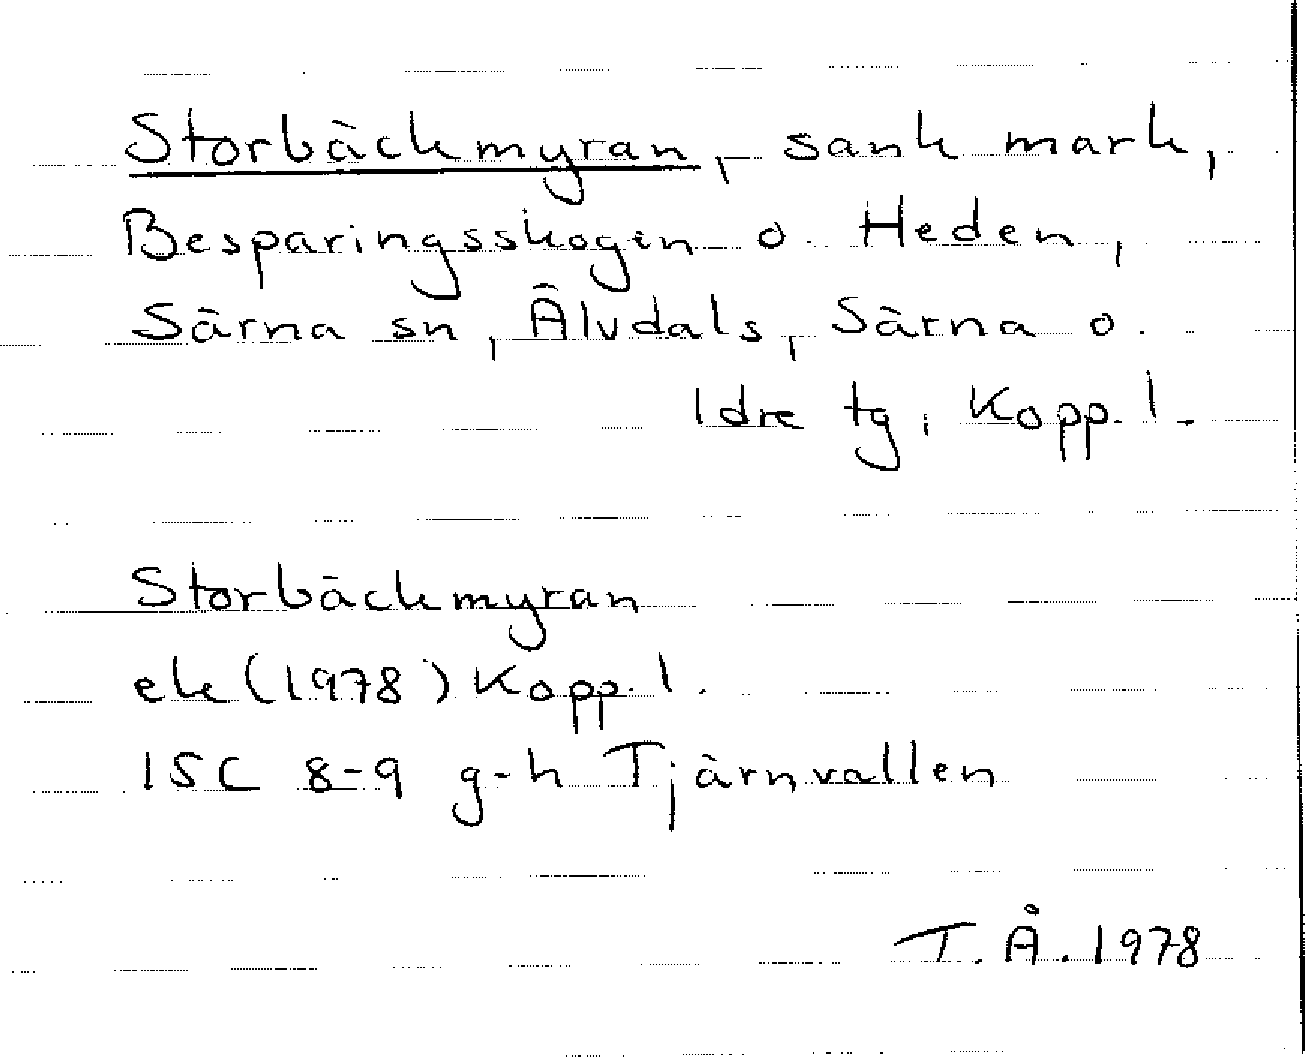 Storbäckmyran, sank mark,
Besparingsskogen o. Heden,
Särna sn, Älvdals, Särna o.
Idre tg, Kopp. l.
Storbäckmyran
ek (1978) Kopp. l.
15C 8-9 g-h Tjärnvallen
T. Å. 1978